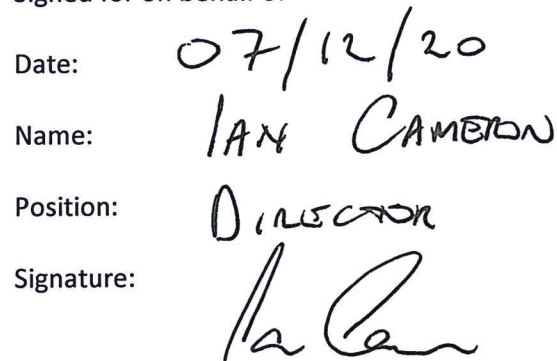 Signed for on behalf of
Date: 07/12/20
Name: IAN CAMERON
Position: DIRECTOR
Signature: